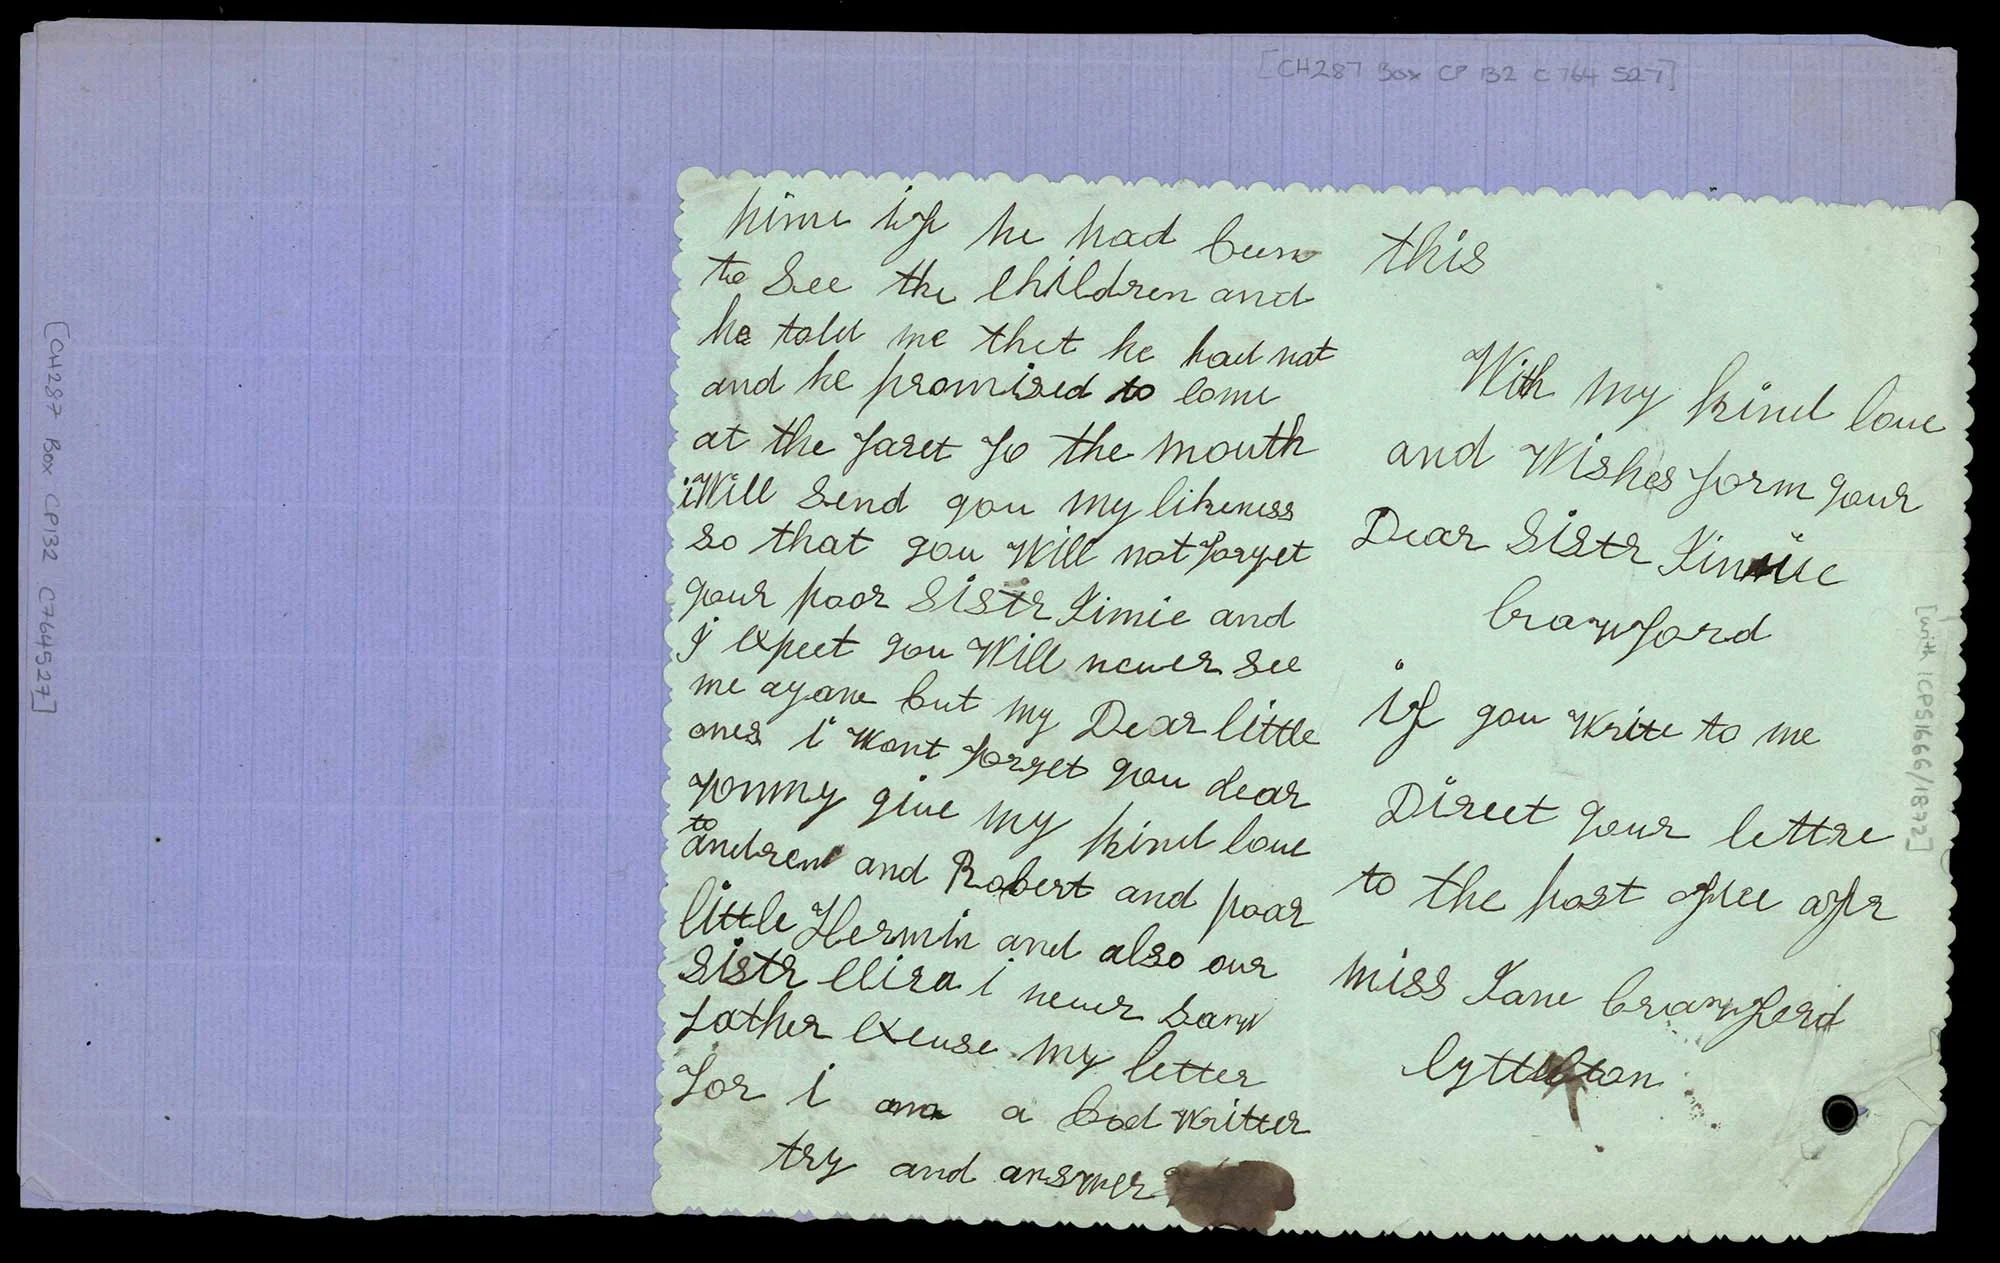 [CH287 Box CP 132 C 764 527]
hime if he had been
to See the Children and
he told me thet he had not
and he promised to come
at the farst fo the mouth
i Will Send you my likeness
so that you Will not forget
your poor Sistr Jimie and
I expect you Will never see
me agane but my Dear little
ones i Wont forget you dear
Tommy give my kind love
to
andrew and Robert and poor
little Hermin and also our
Sistr elisa i never Saw
father excuse my letter
for i ama a bad Writter
try and answer
this
With my kind love
and Wishes form your
Dear Sistr Jinnie
Crawford
if you Write to me
Direct your lettre
to the post offiee offr
miss Jane Crawford
lyttelton
[CH287 Box CP132 C764527]
[with ICPS1666/1872]